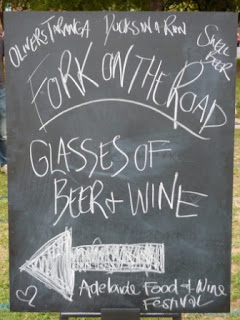 OLIVERS TARANGA DUCKS IN A ROW SWELL BEER
FORK ON THE ROAD
GLASSES OF
BEER + WINE
Adelaide Food + Wine
FESTIVAL